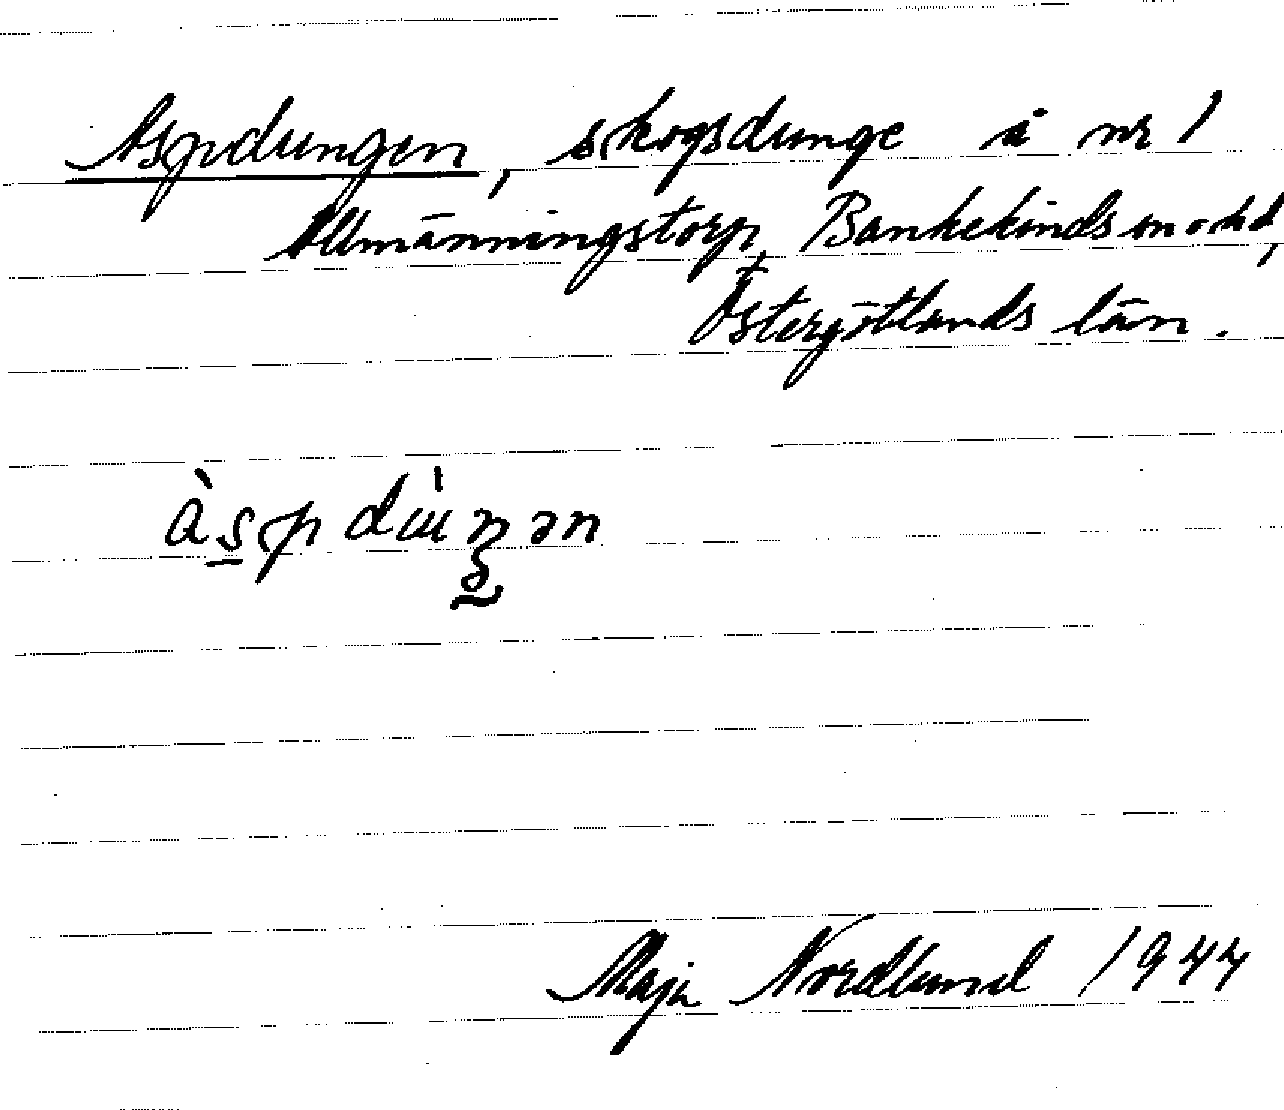 Aspdungen, skogsdunge å nr 1
Allmänningstorp, Bankekinds sn o hd,
Östergötlands län.
àspdùŋən
Maja Nordlund 1944